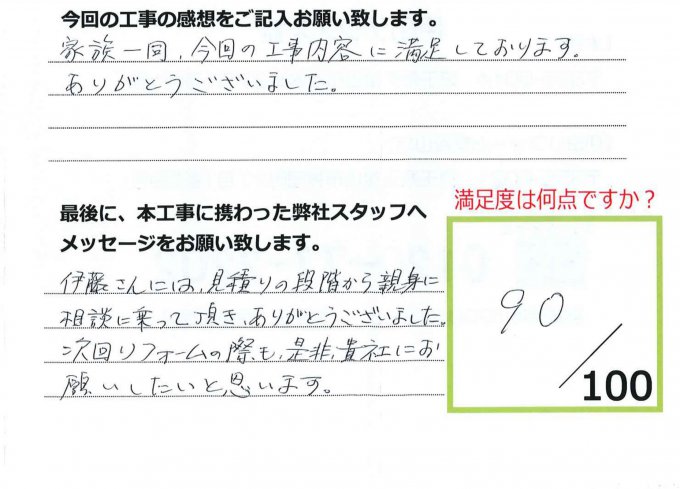 今回の工事の感想をご記入お願い致します。
家族一同、今回の工事内容に満足しております。
ありがとうございました。
最後に、本工事に携わった弊社スタッフへ
メッセージをお願い致します。
伊藤さんには、見積りの段階から親身に
相談に乗って頂き、ありがとうございました。
次回リフォームの際も、是非、貴社にお
願いしたいと思います。
満足度は何点ですか？
90
/100